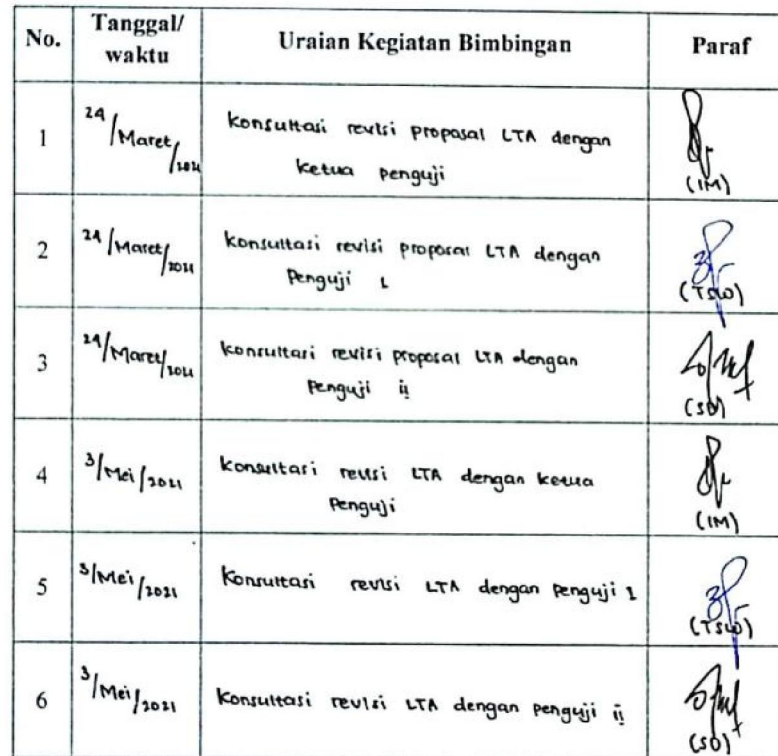 No. Tanggal/ waktu Uraian Kegiatan Bimbingan Paraf
1 24/Maret/2021 Konsultasi revisi proposal LTA dengan
ketua penguji
(IM)
2 24/Maret/2021 Konsultasi revisi proposal LTA dengan
Penguji I
(TSW)
3 24/Maret/2021 Konsultasi revisi proposal LTA dengan
Penguji ii
(SU)
4 3/Mei/2021 Konsultasi revisi LTA dengan ketua
Penguji
(IM)
5 3/Mei/2021 Konsultasi revisi LTA dengan penguji I
(TSW)
6 3/Mei/2021 Konsultasi revisi LTA dengan penguji ii
(SU)